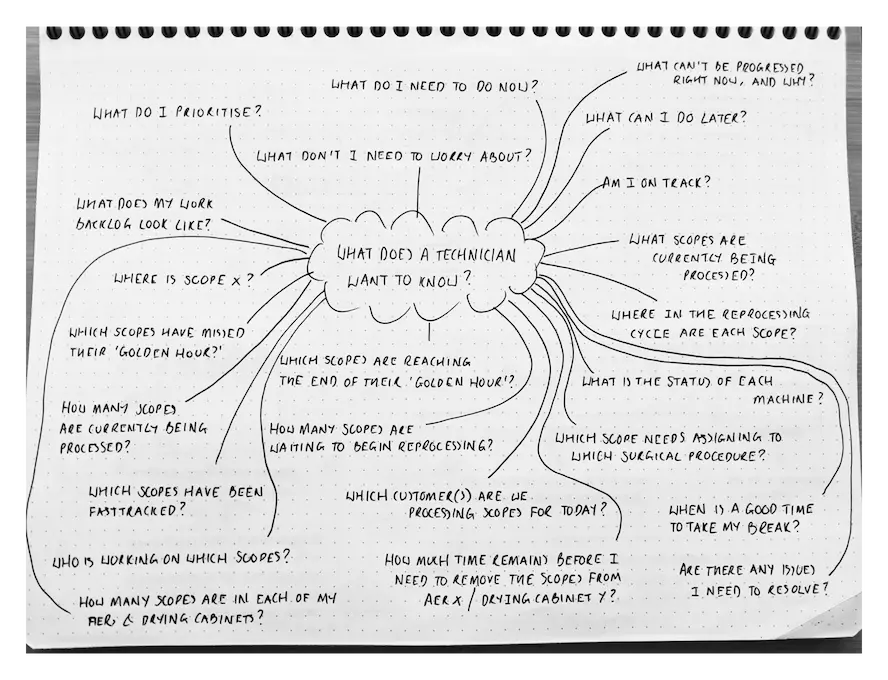 WHAT DO I NEED TO DO NOW?
WHAT CAN'T BE PROGRESSED
RIGHT NOW, AND WHY?
WHAT DO I PRIORITISE?
WHAT CAN I DO LATER?
WHAT DON'T I NEED TO WORRY ABOUT?
AM I ON TRACK?
WHAT DOES MY WORK
BACKLOG LOOK LIKE?
WHAT DOES A TECHNICIAN
WANT TO KNOW?
WHAT SCOPES ARE
CURRENTLY BEING
PROCESSED?
WHERE IS SCOPE X?
WHERE IN THE REPROCESSING
CYCLE ARE EACH SCOPE?
WHICH SCOPES HAVE MISSED
THEIR 'GOLDEN HOUR?'
WHICH SCOPES ARE REACHING
THE END OF THEIR 'GOLDEN HOUR'?
WHAT IS THE STATUS OF EACH
MACHINE?
HOW MANY SCOPES
ARE CURRENTLY BEING
PROCESSED?
HOW MANY SCOPES ARE
WAITING TO BEGIN REPROCESSING?
WHICH SCOPE NEEDS ASSIGNING TO
WHICH SURGICAL PROCEDURE?
WHICH SCOPES HAVE BEEN
FASTTRACKED?
WHICH CUSTOMER(S) ARE WE
PROCESSING SCOPES FOR TODAY?
WHEN IS A GOOD TIME
TO TAKE MY BREAK?
WHO IS WORKING ON WHICH SCOPES?
HOW MUCH TIME REMAINS BEFORE I
NEED TO REMOVE THE SCOPES FROM
AER X / DRYING CABINET Y?
ARE THERE ANY ISSUES
I NEED TO RESOLVE?
HOW MANY SCOPES ARE IN EACH OF MY
AERS & DRYING CABINETS?